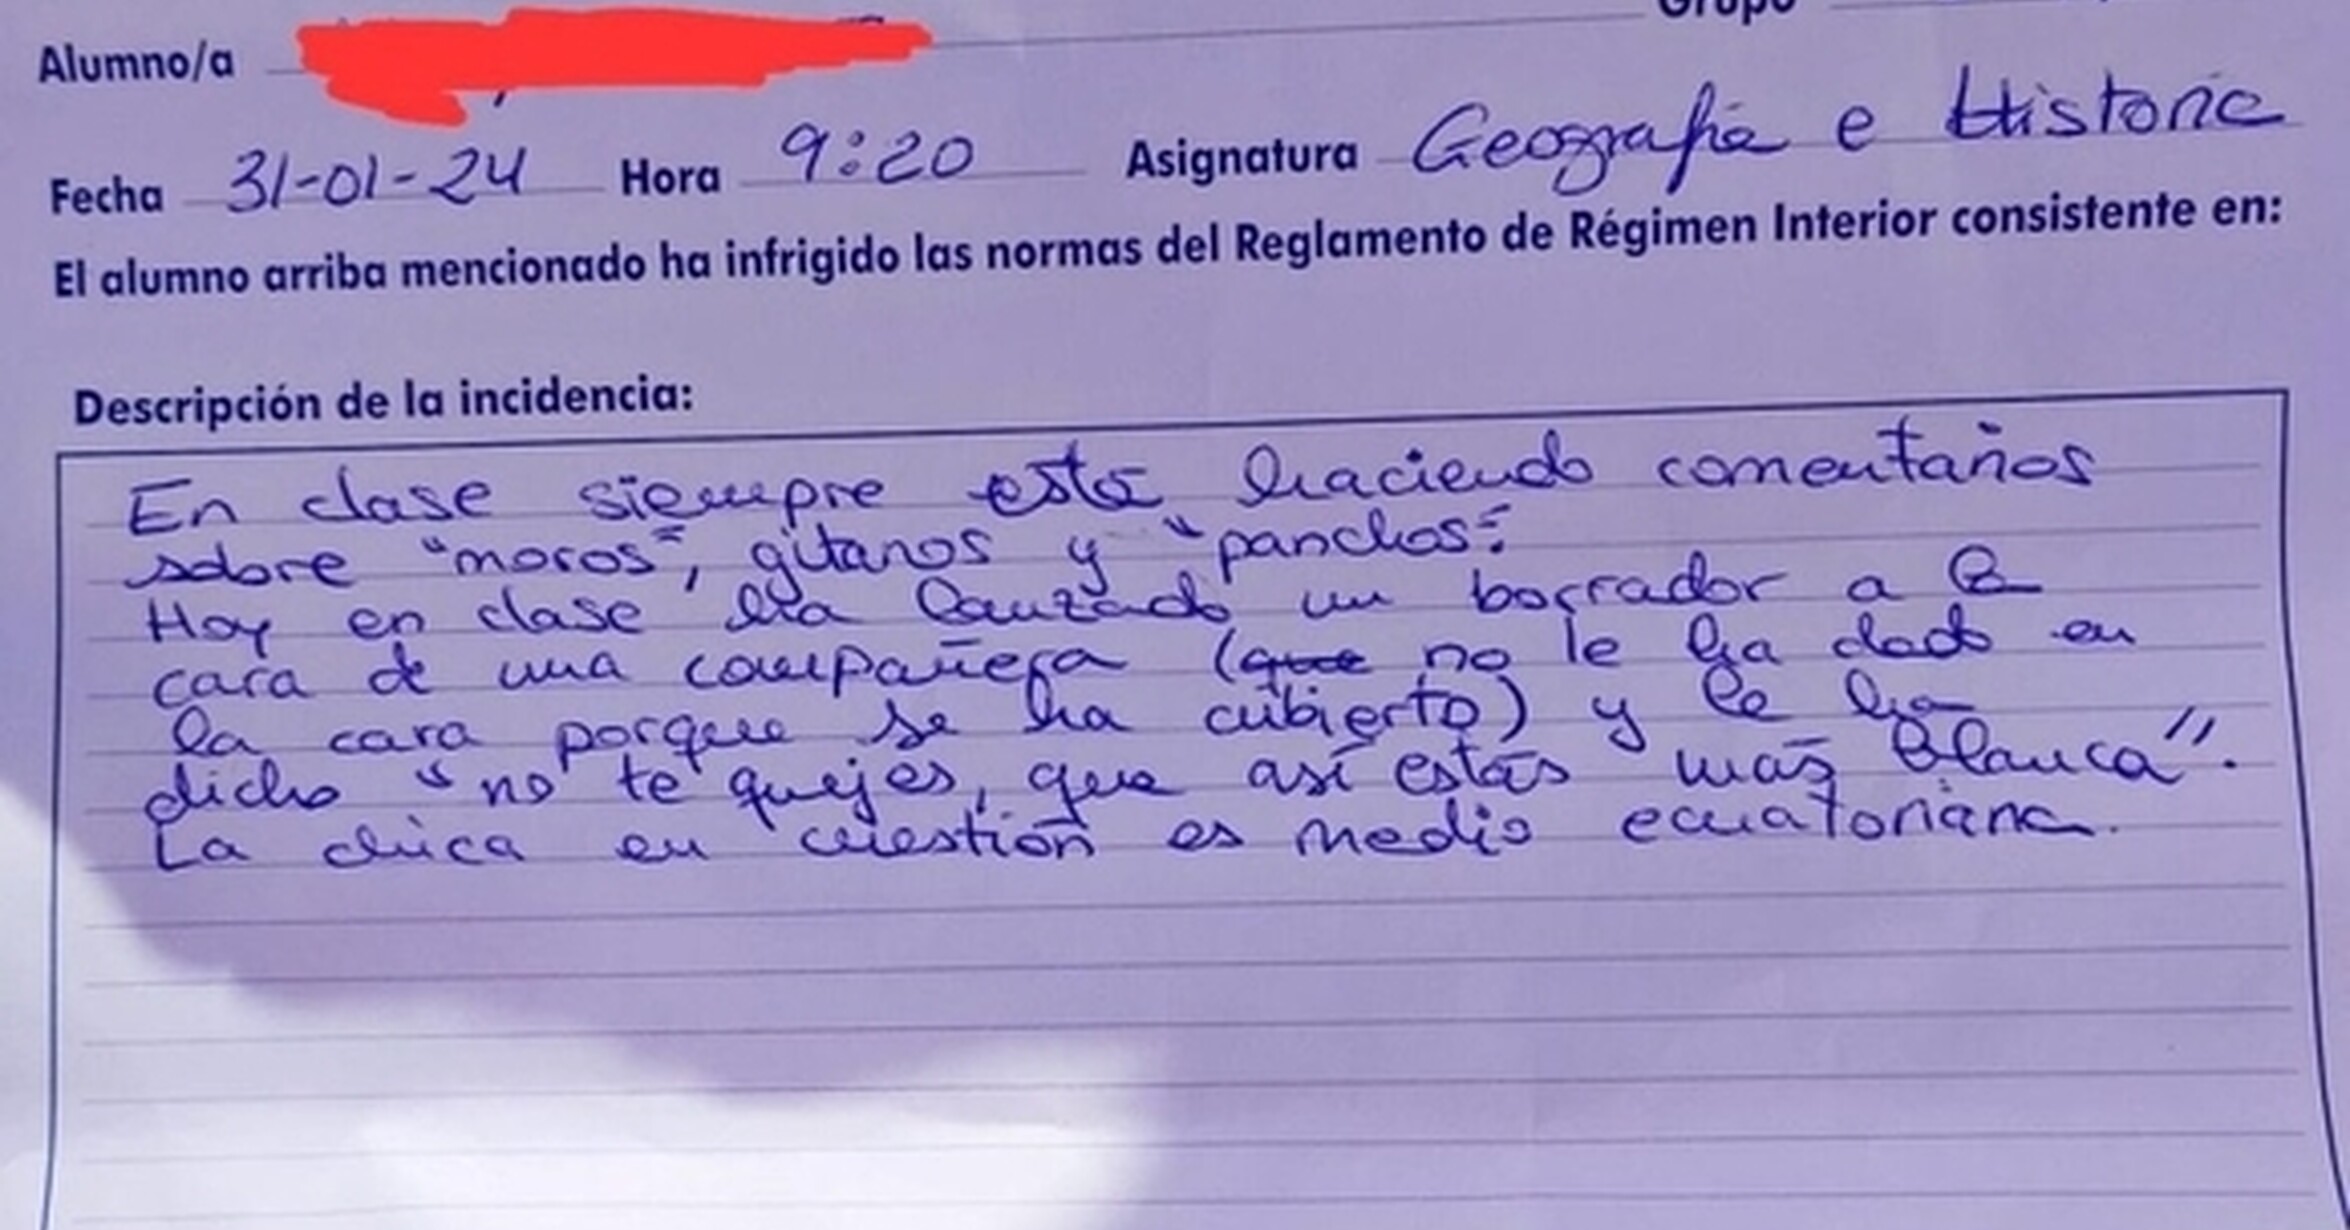 Grupo
Alumno/a
Fecha 31-01-24 Hora 9:20 Asignatura Geografía e Historia
El alumno arriba mencionado ha infrigido las normas del Reglamento de Régimen Interior consistente en:
Descripción de la incidencia:
En clase siempre está haciendo comentarios
sobre "moros", gitanos y "panchos".
Hoy en clase ha lanzado un borrador a la
cara de una compañera (que no le ha dado en
la cara porque se ha cubierto) y le ha
dicho "no te quejes, que así estás más blanca".
La chica en cuestión es medio ecuatoriana.